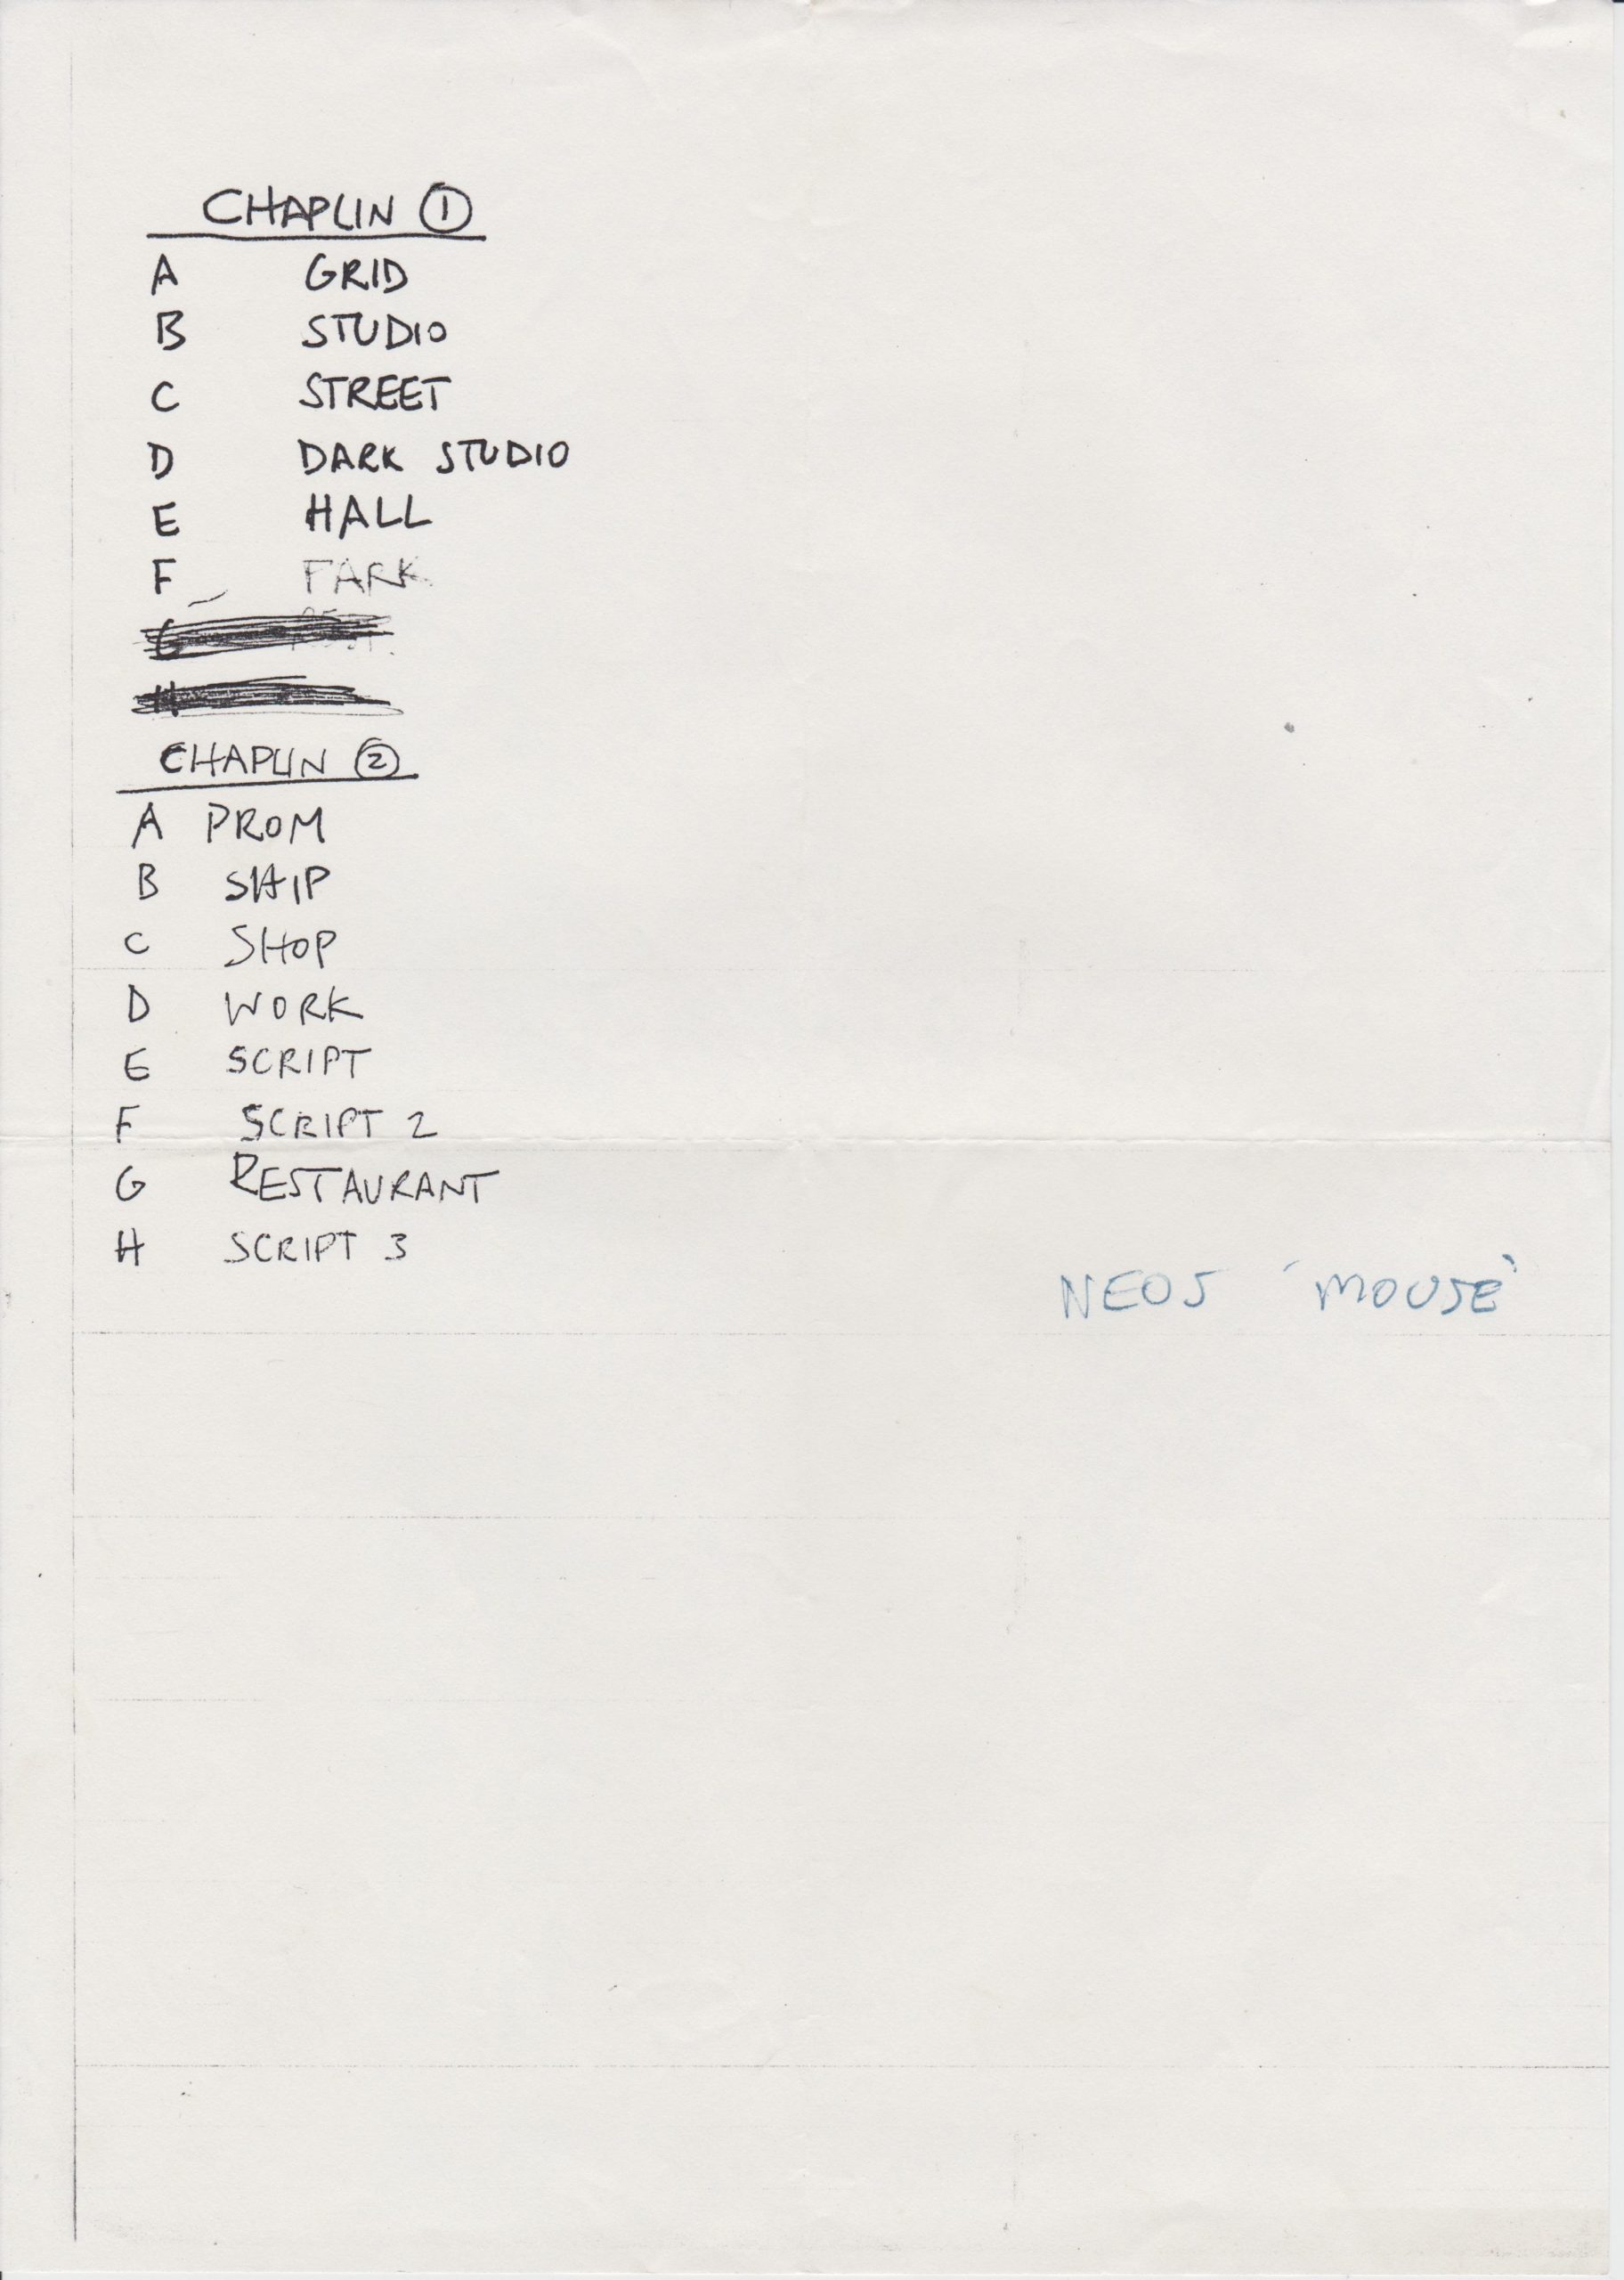 CHAPLIN ①
A GRID
B STUDIO
C STREET
D DARK STUDIO
E HALL
F PARK
G
H
CHAPLIN ②
A PROM
B SHIP
C SHOP
D WORK
E SCRIPT
F SCRIPT 2
G RESTAURANT
H SCRIPT 3
NEOS 'MOUSE'